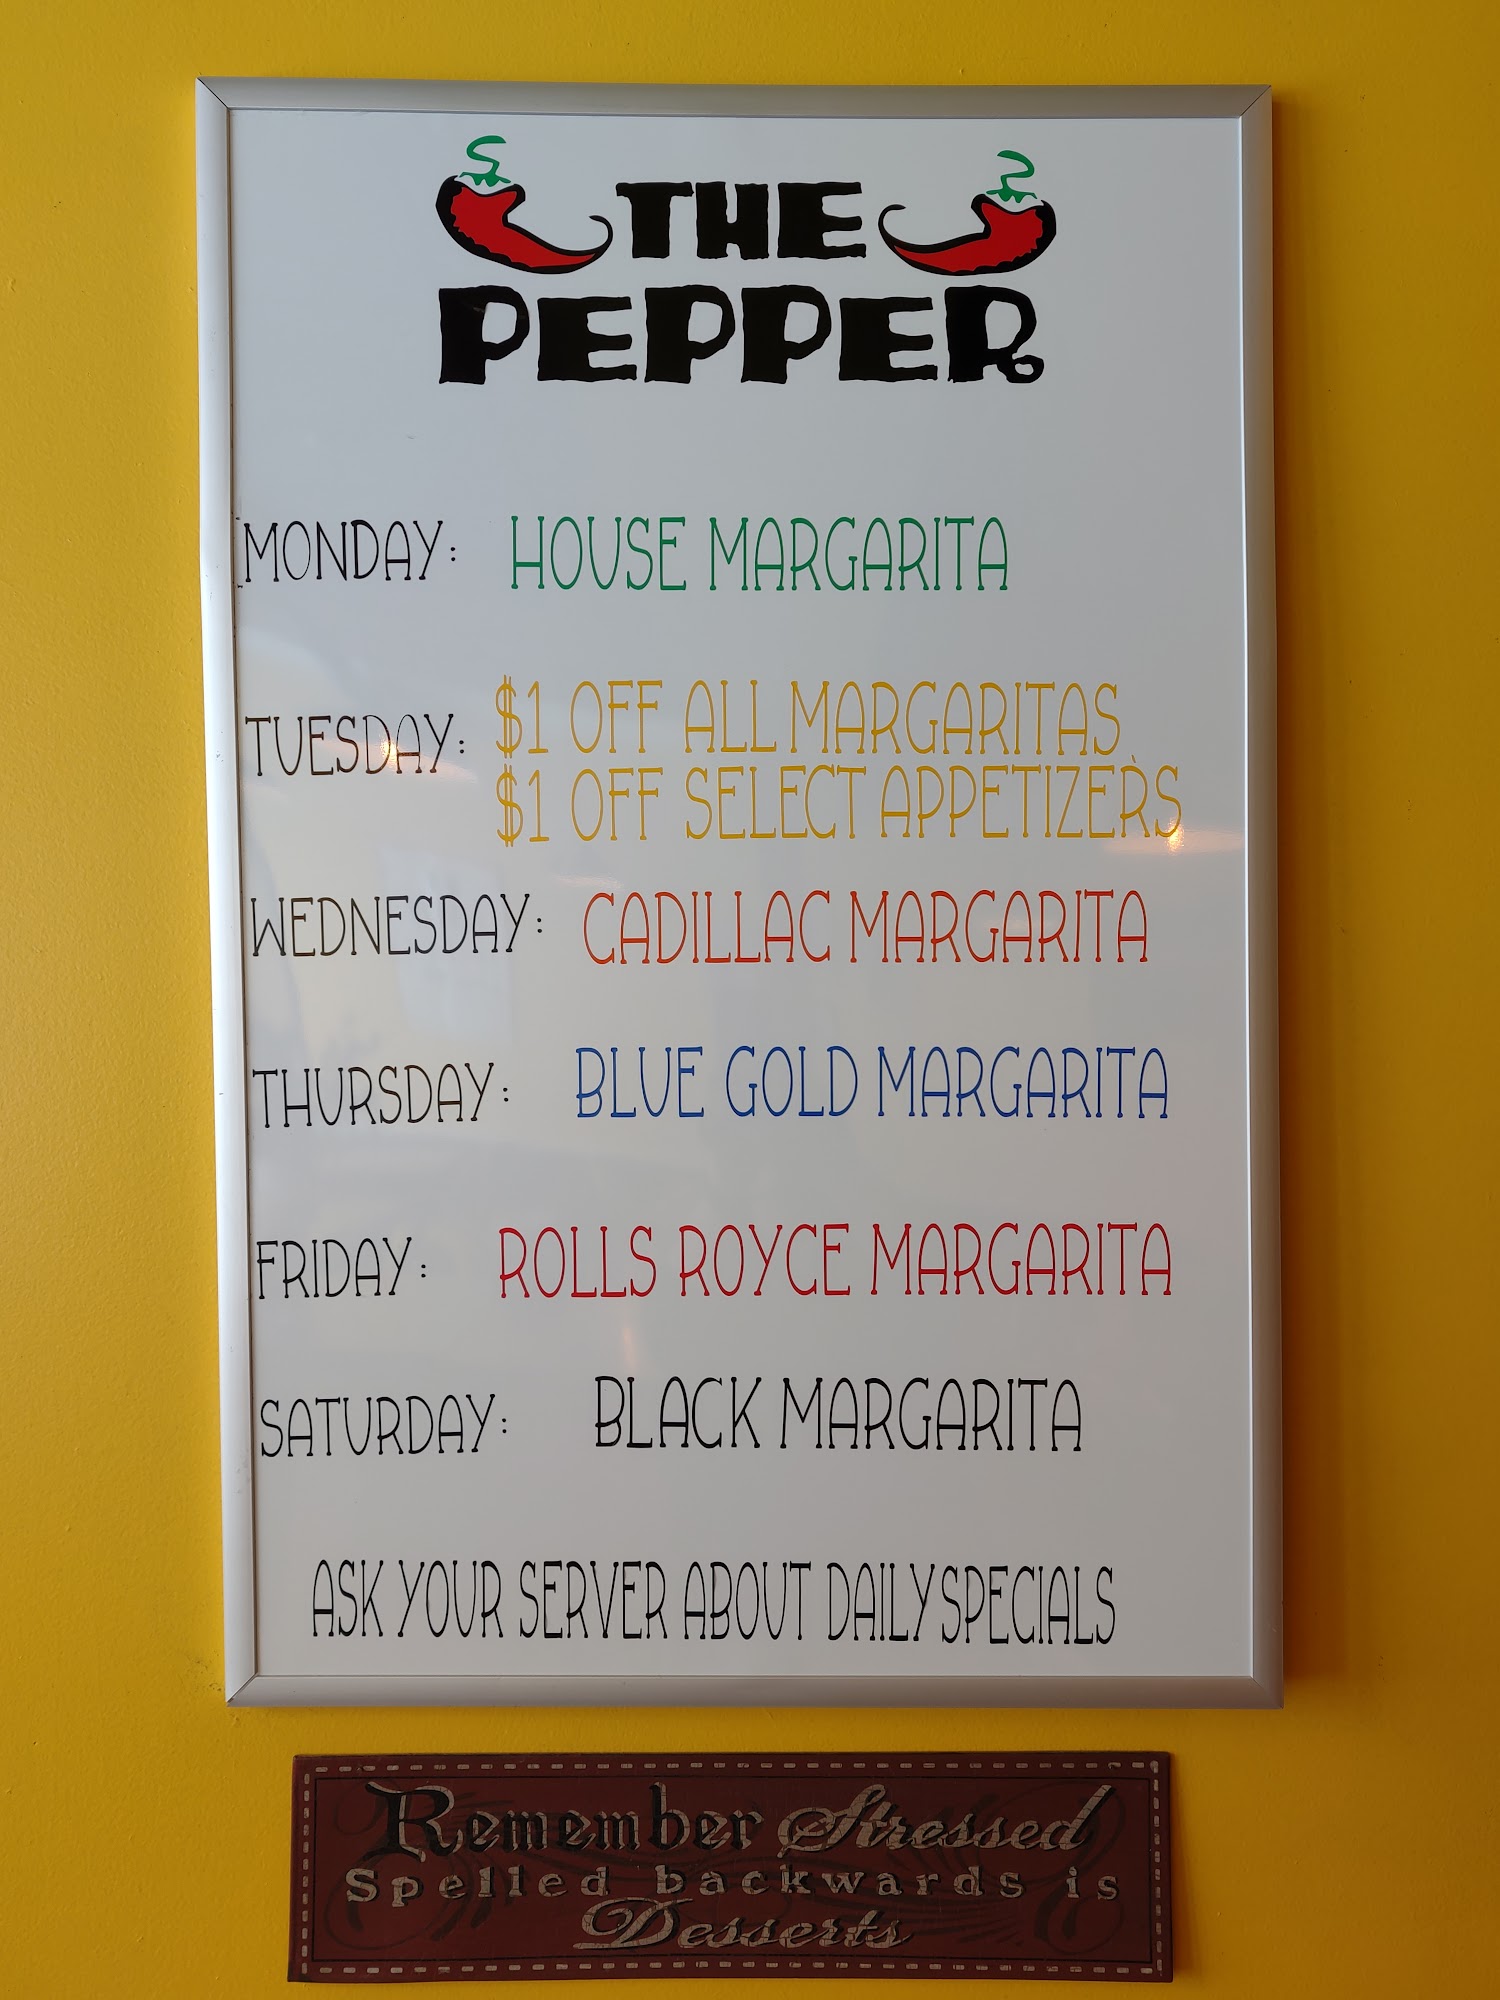 THE
PEPPER
MONDAY: HOUSE MARGARITA
TUESDAY: $1 OFF ALL MARGARITAS
$1 OFF SELECT APPETIZERS
WEDNESDAY: CADILLAC MARGARITA
THURSDAY: BLUE GOLD MARGARITA
FRIDAY: ROLLS ROYCE MARGARITA
SATURDAY: BLACK MARGARITA
ASK YOUR SERVER ABOUT DAILY SPECIALS
Remember Stressed
Spelled backwards is
Desserts